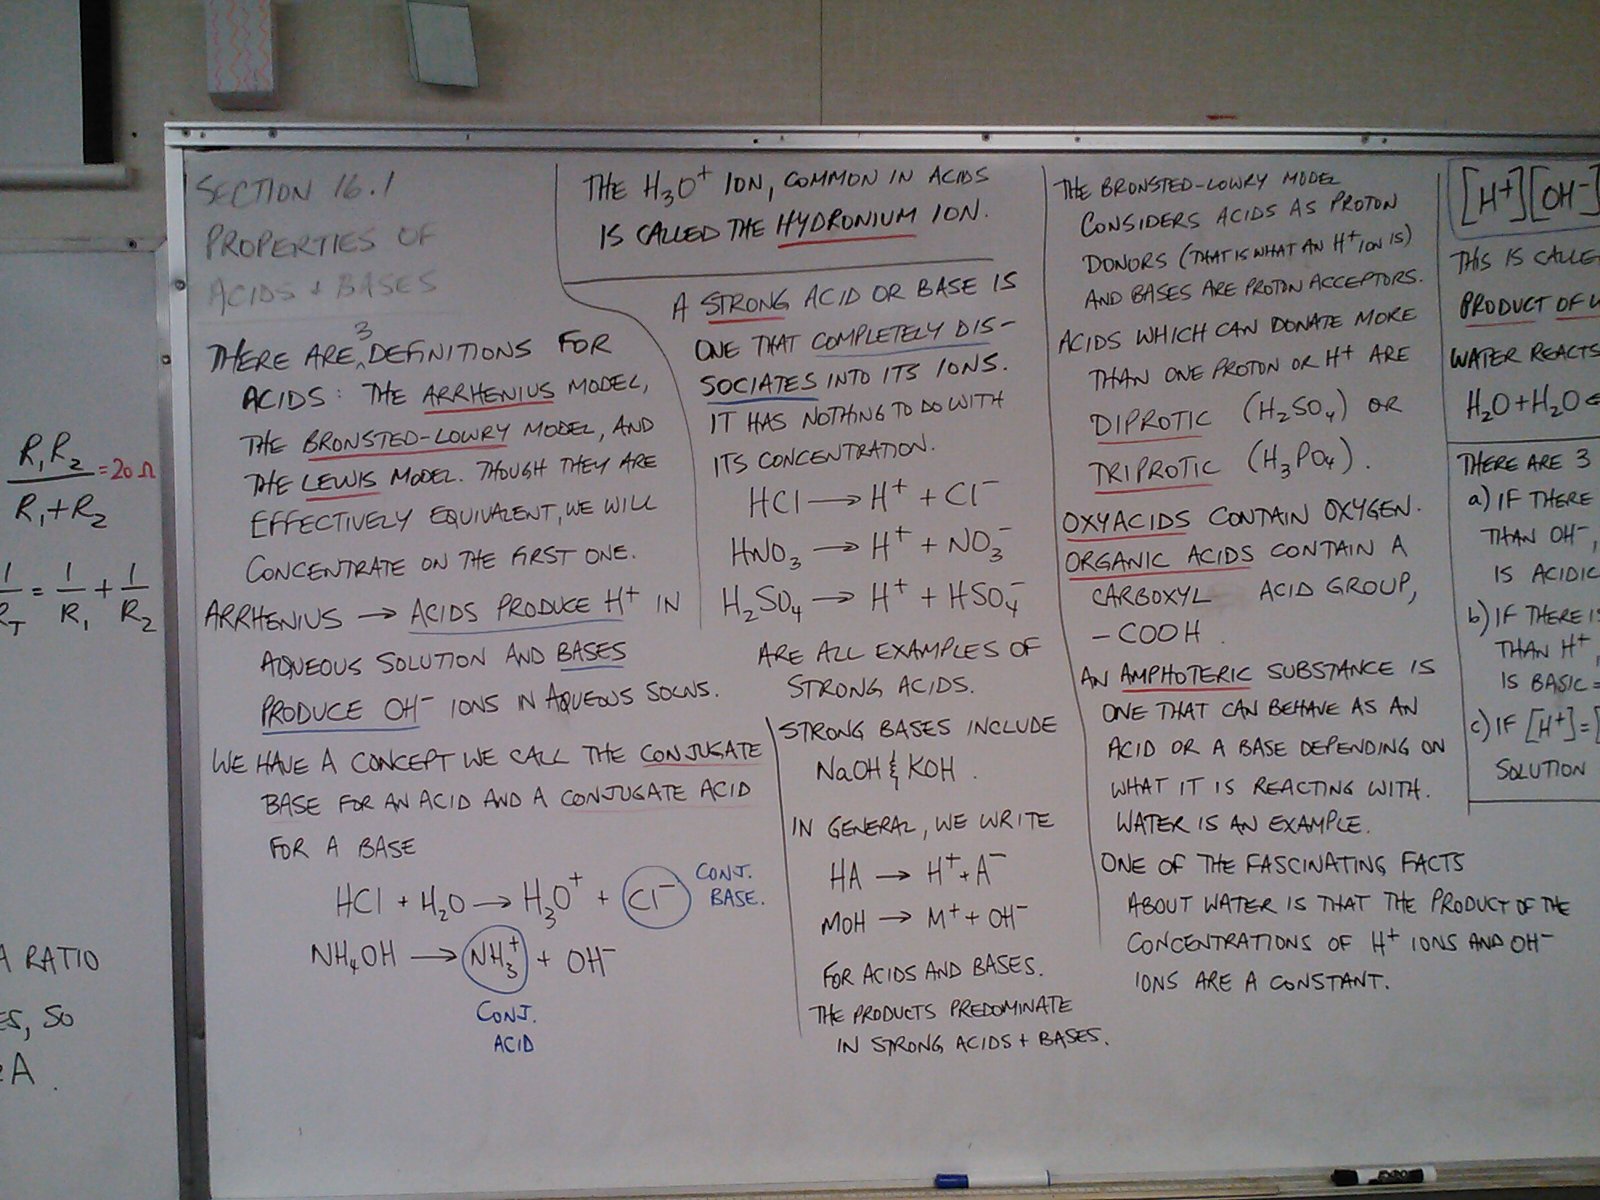 R₁R₂ = 20 Ω
R₁+R₂
1/R_T = 1/R₁ + 1/R₂
A RATIO
ES, SO
A.
SECTION 16.1
PROPERTIES OF
ACIDS + BASES
THERE ARE 3 DEFINITIONS FOR
ACIDS: THE ARRHENIUS MODEL,
THE BRONSTED-LOWRY MODEL, AND
THE LEWIS MODEL. THOUGH THEY ARE
EFFECTIVELY EQUIVALENT, WE WILL
CONCENTRATE ON THE FIRST ONE.
ARRHENIUS → ACIDS PRODUCE H⁺ IN
AQUEOUS SOLUTION AND BASES
PRODUCE OH⁻ IONS IN AQUEOUS SOLNS.
WE HAVE A CONCEPT WE CALL THE CONJUGATE
BASE FOR AN ACID AND A CONJUGATE ACID
FOR A BASE
HCl + H₂O → H₃O⁺ + Cl⁻ CONJ.
BASE.
NH₄OH → NH₃⁺ + OH⁻
CONJ.
ACID
THE H₃O⁺ ION, COMMON IN ACIDS
IS CALLED THE HYDRONIUM ION.
A STRONG ACID OR BASE IS
ONE THAT COMPLETELY DIS-
SOCIATES INTO ITS IONS.
IT HAS NOTHING TO DO WITH
ITS CONCENTRATION.
HCl → H⁺ + Cl⁻
HNO₃ → H⁺ + NO₃⁻
H₂SO₄ → H⁺ + HSO₄⁻
ARE ALL EXAMPLES OF
STRONG ACIDS.
STRONG BASES INCLUDE
NaOH & KOH.
IN GENERAL, WE WRITE
HA → H⁺ + A⁻
MOH → M⁺ + OH⁻
FOR ACIDS AND BASES.
THE PRODUCTS PREDOMINATE
IN STRONG ACIDS + BASES.
THE BRONSTED-LOWRY MODEL
CONSIDERS ACIDS AS PROTON
DONORS (THAT IS WHAT AN H⁺ ION IS)
AND BASES ARE PROTON ACCEPTORS.
ACIDS WHICH CAN DONATE MORE
THAN ONE PROTON OR H⁺ ARE
DIPROTIC (H₂SO₄) OR
TRIPROTIC (H₃PO₄).
OXYACIDS CONTAIN OXYGEN.
ORGANIC ACIDS CONTAIN A
CARBOXYL ACID GROUP,
-COOH.
AN AMPHOTERIC SUBSTANCE IS
ONE THAT CAN BEHAVE AS AN
ACID OR A BASE DEPENDING ON
WHAT IT IS REACTING WITH.
WATER IS AN EXAMPLE.
ONE OF THE FASCINATING FACTS
ABOUT WATER IS THAT THE PRODUCT OF THE
CONCENTRATIONS OF H⁺ IONS AND OH⁻
IONS ARE A CONSTANT.
[H⁺][OH⁻]
THIS IS CALLE
PRODUCT OF
WATER REACTS
H₂O + H₂O
THERE ARE 3
a) IF THERE
THAN OH⁻,
IS ACIDIC
b) IF THERE IS
THAN H⁺,
IS BASIC =
c) IF [H⁺] = [
SOLUTION
EXPO